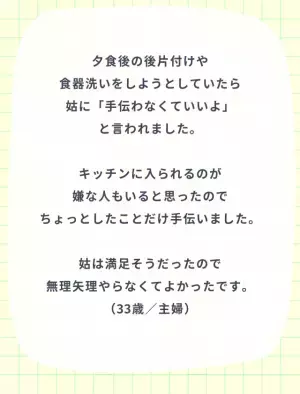 夕食後の後片付けや
食器洗いをしようとしていたら
姑に「手伝わなくていいよ」
と言われました。
キッチンに入られるのが
嫌な人もいると思ったので
ちょっとしたことだけ手伝いました。
姑は満足そうだったので
無理矢理やらなくてよかったです。
（33歳／主婦）